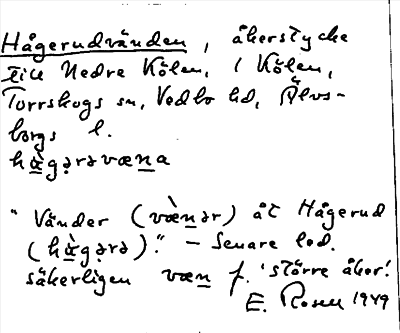 Hågerudvänden, åkerstycke
till Nedre Kölen, i Kölen,
Torrskogs sn, Vedbo hd, Älvs-
borgs l.
hæ̀gərəvæna
"Vänder (væ̀nər) åt Hågerud
(hæ̀gərə)." – Senare led.
säkerligen væn f. 'större åker'.
E. Rosell 1949